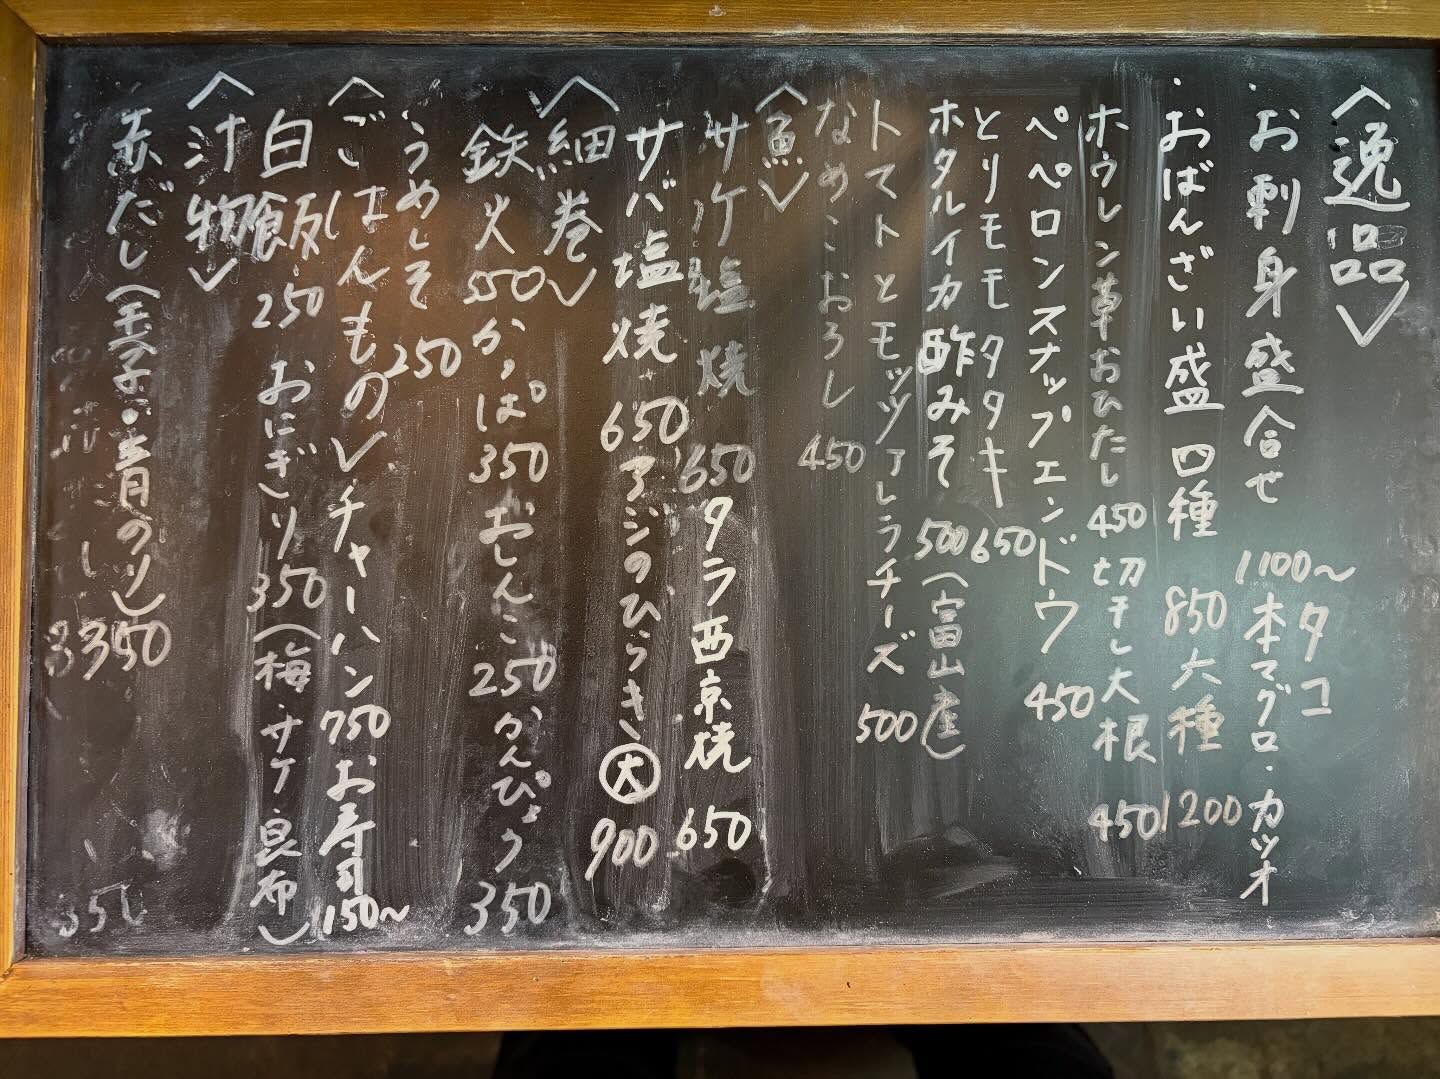 〈逸品〉
・お刺身盛合せ 1100〜 本マグロ・カツオ
タコ
・おばんざい盛 四種 850 六種 1200
ホウレン草おひたし 450 切干し大根 450
ペペロンスナップエンドウ 450
とりモモタタキ 650
ホタルイカ酢みそ 500 (富山産)
トマトとモッツァレラチーズ 500
なめこおろし 450
〈魚〉
サケ塩焼 650 タラ西京焼 650
サバ塩焼 650 アジのひらき 大 900
〈細巻〉
鉄火 550 かっぱ 350 おしんこ 250 かんぴょう 350
うめしそ 250
〈ごはんもの〉 チャーハン 750 お寿司 150〜
白飯 250 おにぎり 350 (梅・サケ・昆布)
〈汁物〉
赤だし (玉子・青のり) 350